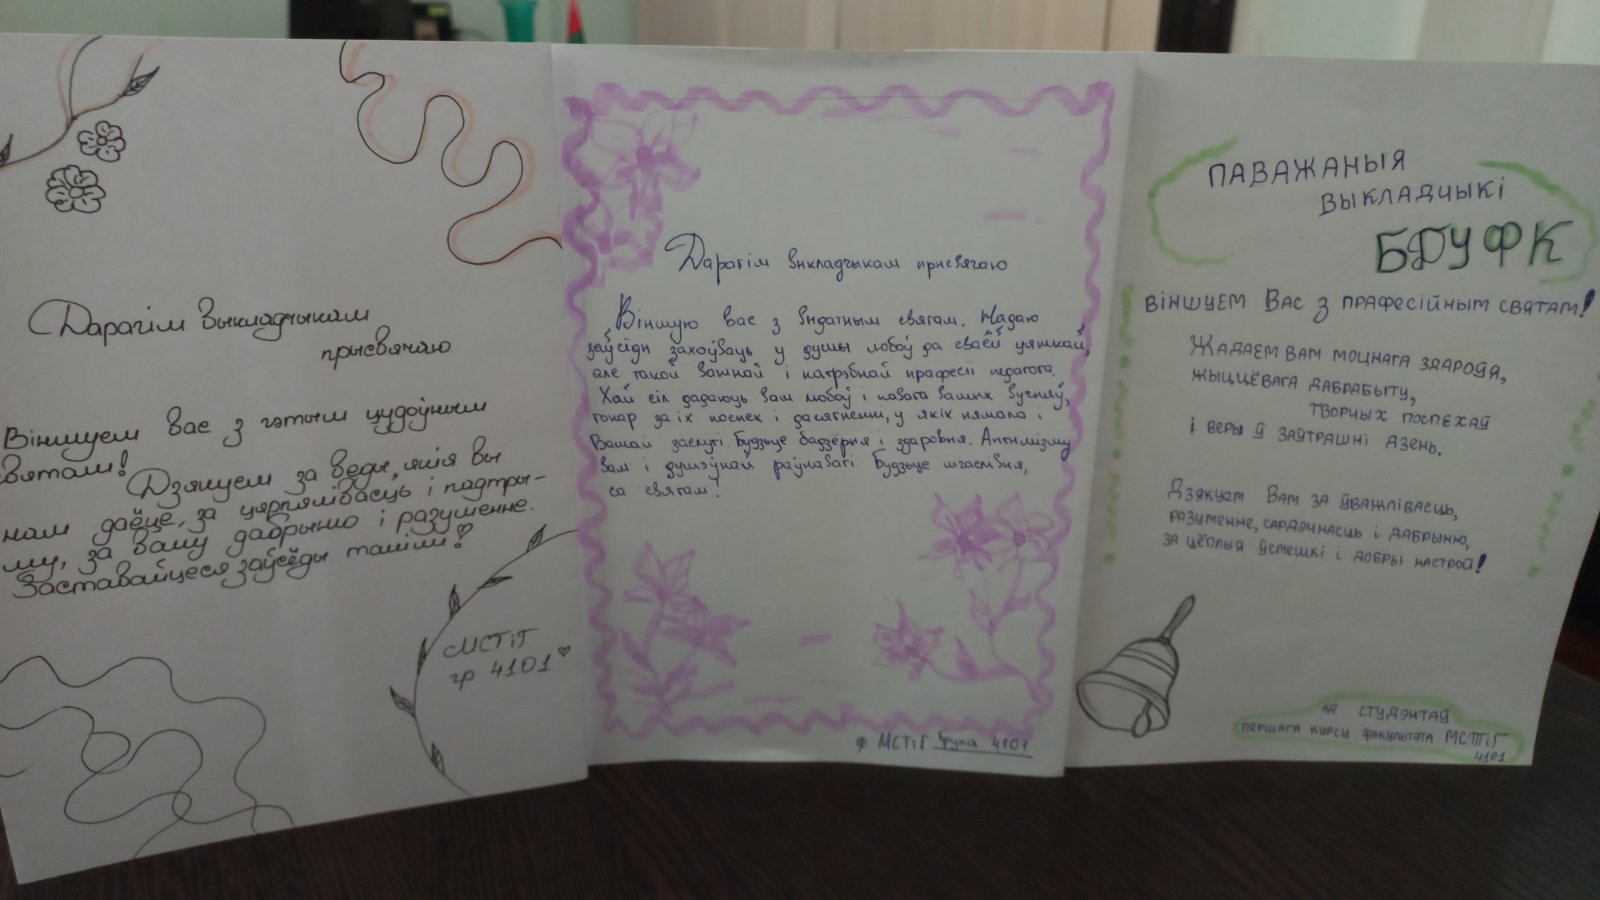 Дарагім выкладчыкам
прысвячаю
Віншуем вас з гэтым цудоўным
святам!
Дзякуем за веды, якія вы
нам даёце, за цярплівасць і падтры-
му, за вашу дабрыню і разуменне.
Заставайцеся заўсёды такімі!
МСТіГ
гр 4101
Дарагім выкладчыкам присвягаю
Віншую вас з выдатным святам. Жадаю
заўсёды захоўваць у душы любоў да сваёй цяжкай,
але такой важнай і патрэбнай прафесіі педагога.
Хай сіл дадаюць вам любоў і павага вашых вучняў,
гонар за іх поспех і дасягненни, у якіх нямала і
Вашай заслугі. Будзьце бадзёрыя і здаровыя. Аптымізму
вам і душэўнай раўнавагі. Будзьце шчаслівыя,
са святам!
ф МСТіГ група 4101
ПАВАЖАНЫЯ
ВЫКЛАДЧЫКІ
БДУФК
ВІНШУЕМ ВАС З ПРАФЕСІЙНЫМ СВЯТАМ!
ЖАДАЕМ ВАМ МОЦНАГА ЗДАРОЎЯ,
ЖЫЦЦЁВАГА ДАБРАБЫТУ,
ТВОРЧЫХ ПОСПЕХАЎ
І ВЕРЫ Ў ЗАЎТРАШНІ ДЗЕНЬ.
ДЗЯКУЕМ ВАМ ЗА ЎВАЖЛІВАСЦЬ,
РАЗУМЕННЕ, САРДЭЧНАСЦЬ І ДАБРЫНЮ,
ЗА ЦЁПЛЫЯ ЎСМЕШКІ І ДОБРЫ НАСТРОЙ!
АД СТУДЭНТАЎ
ПЕРШАГА КУРСУ ФАКУЛЬТЭТА МСТІГ
4101